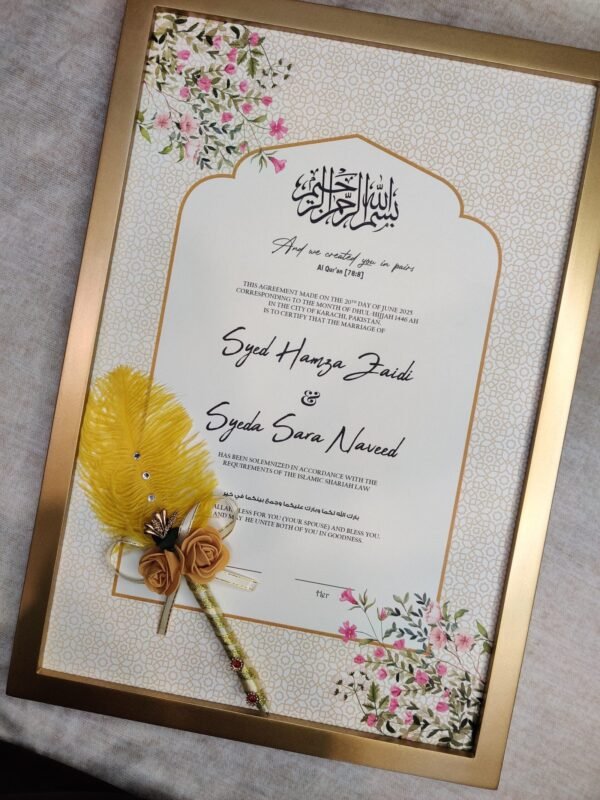 بسم الله الرحمن الرحيم
And we created you in pairs
Al Qur'an [78:8]
THIS AGREEMENT MADE ON THE 20TH DAY OF JUNE 2025
CORRESPONDING TO THE MONTH OF DHUL-HIJJAH 1446 AH
IN THE CITY OF KARACHI, PAKISTAN,
IS TO CERTIFY THAT THE MARRIAGE OF
Syed Hamza Zaidi
&
Syeda Sara Naveed
HAS BEEN SOLEMNIZED IN ACCORDANCE WITH THE
REQUIREMENTS OF THE ISLAMIC SHARIAH LAW
بارك الله لكما وبارك عليكما وجمع بينكما في خير
BLESS FOR YOU (YOUR SPOUSE) AND BLESS YOU,
AND MAY HE UNITE BOTH OF YOU IN GOODNESS.
Her